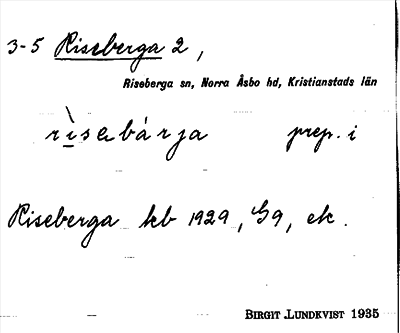 3-5 Riseberga 2,
Riseberga sn, Norra Åsbo hd, Kristianstads län
rìsebárja prep. i
Riseberga kb 1929, G9, ek.
BIRGIT LUNDKVIST 1935